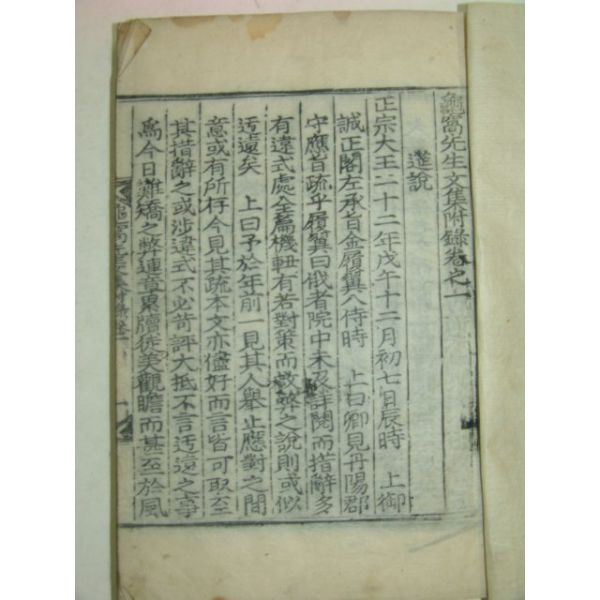 龜窩先生文集附錄卷之一
筵說
正宗大王二十二年戊午十二月初七日辰時 上御
誠正閣左承旨金履翼入侍時 上曰卿見丹陽郡
守應旨疏乎履翼曰俄者院中未及詳閱而措辭多
有違式處全篇機軸有若對策而救弊之說則或似
迃遠矣 上曰予於年前一見其人擧止應對之間
意或有所存今見其疏本文亦儘好而言皆可取至
其措辭之或涉違式不必苛評大抵不言迃遠之事
爲今日難矯之弊連章累牘徒美觀瞻而甚至於風